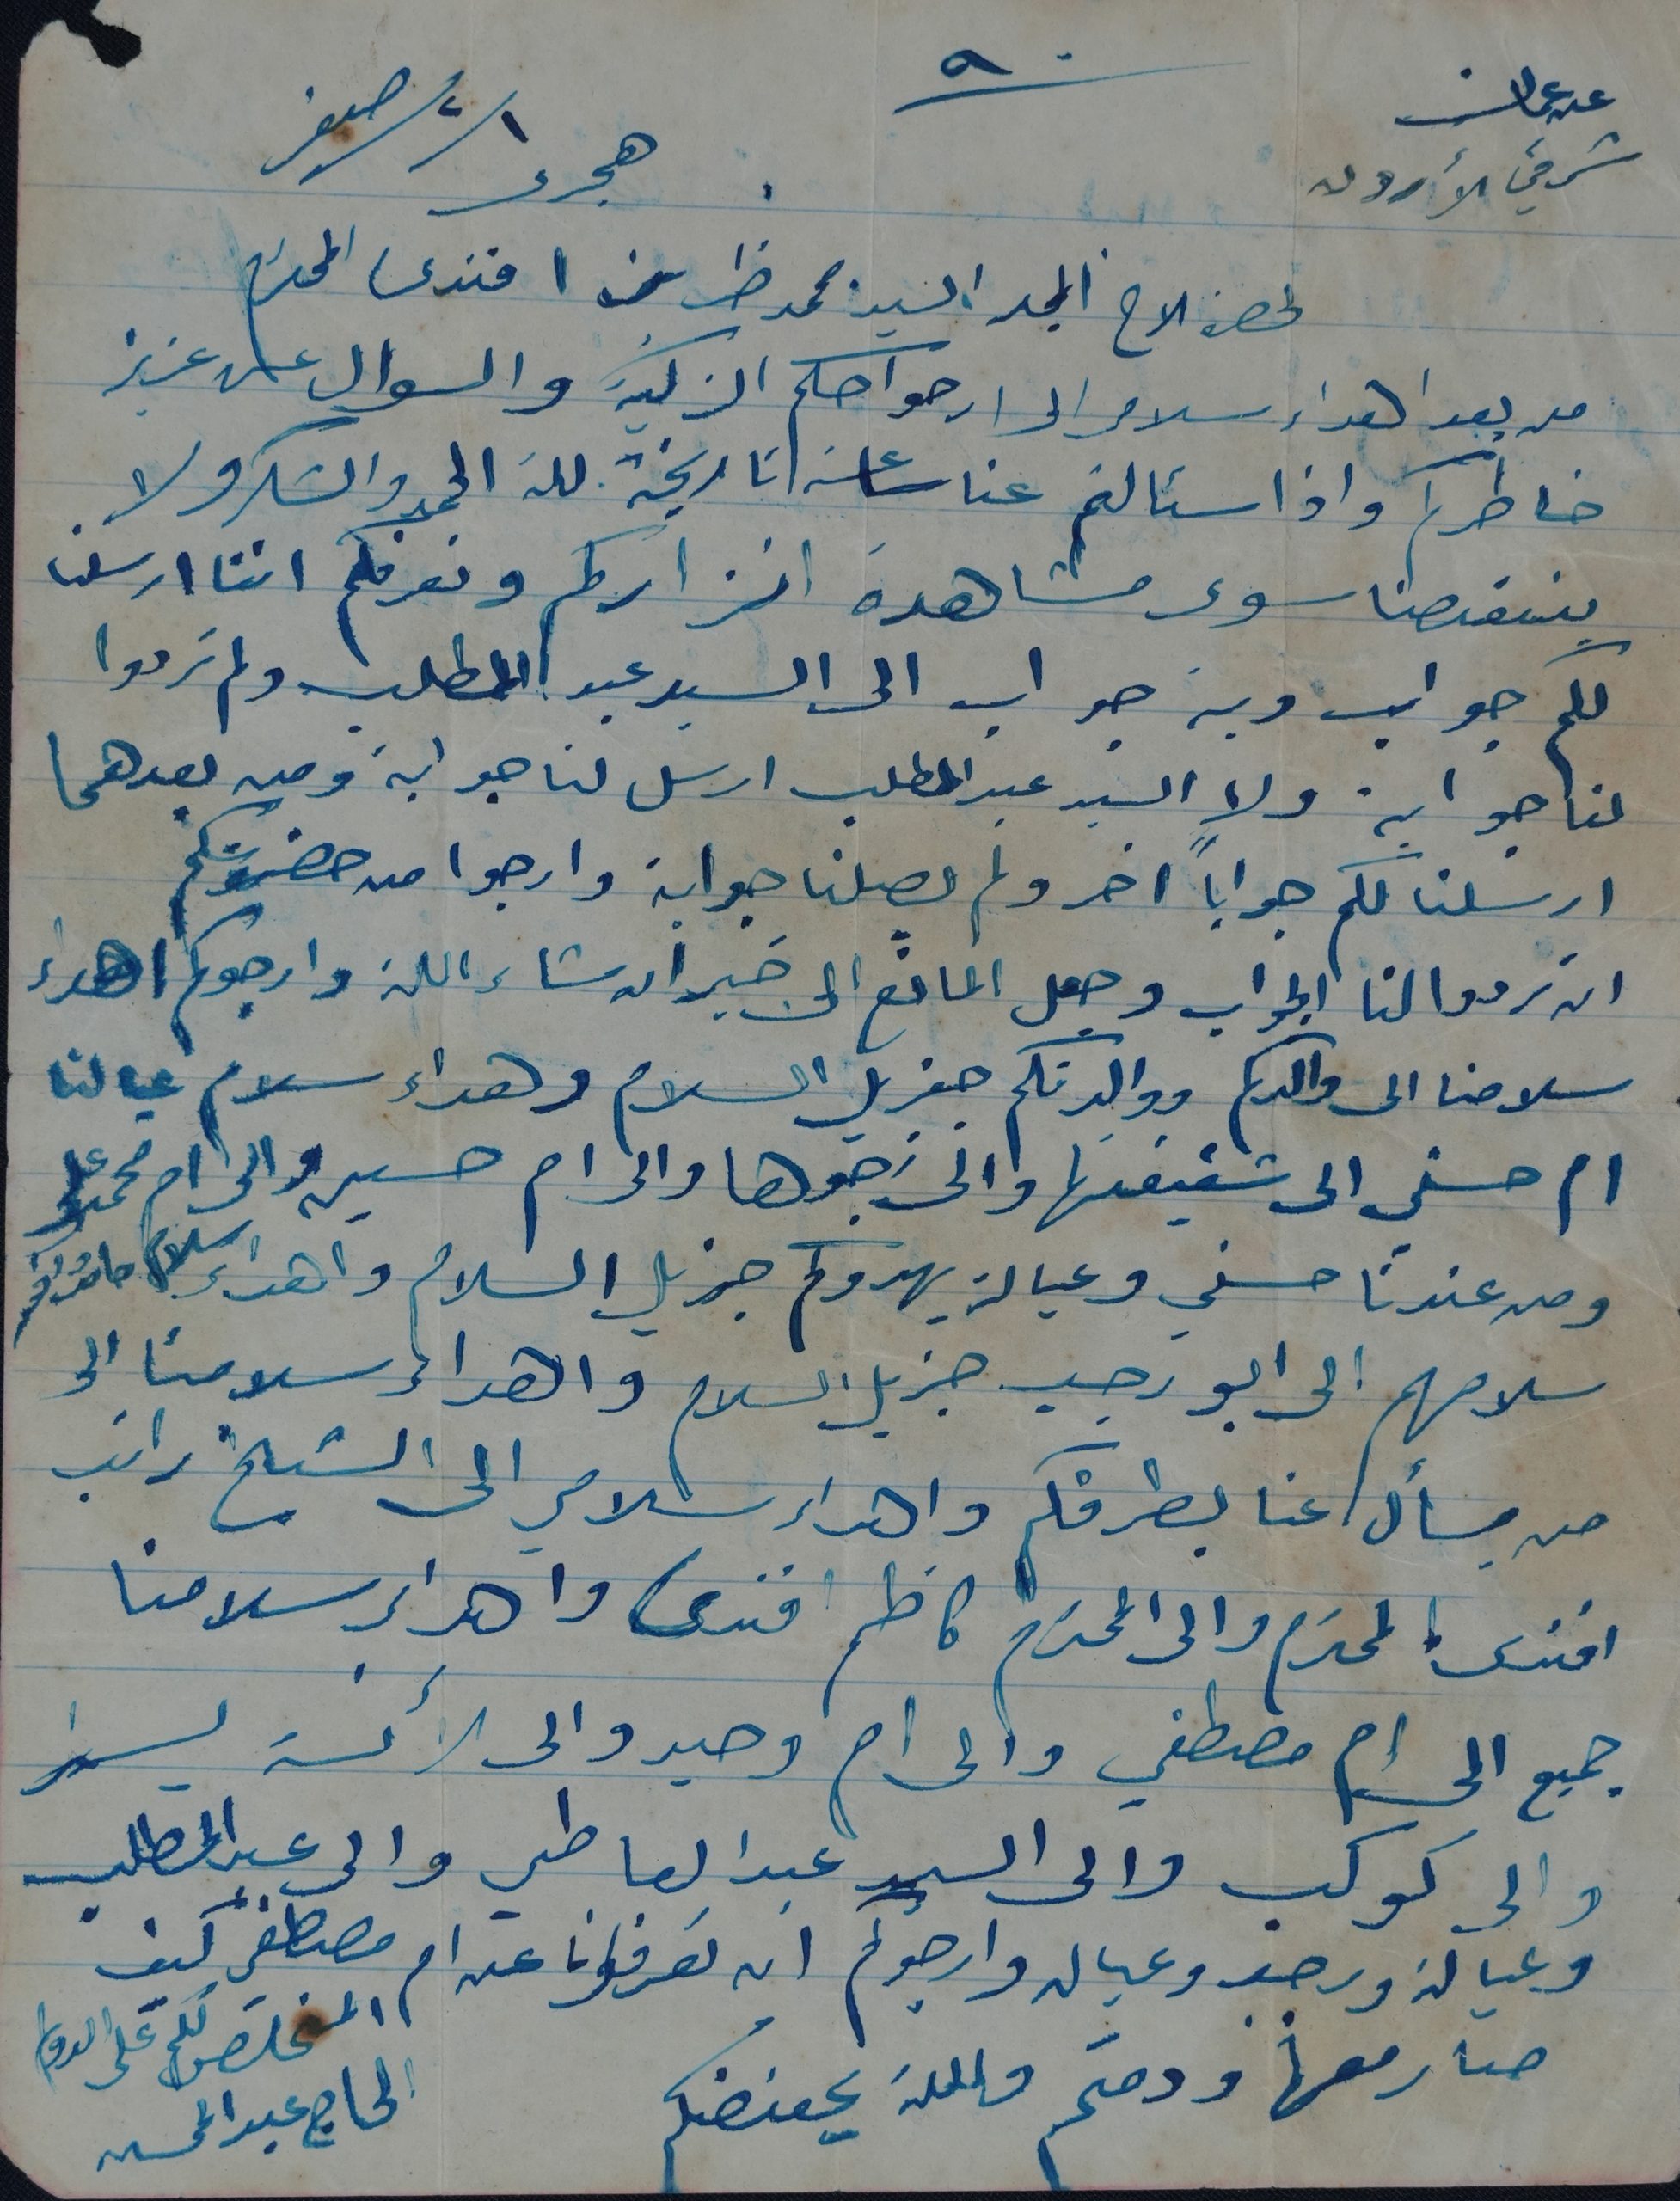 عن عمان
شرقي الأردن
٩٠
٢/١ صفر
هجري
لحضرة الاخ الامجد السيد محمد افندي المحترم
من بعد اهداء سلامي الى ارحواحكم الزكية والسوال عن عزيز
خاطركم واذا سئالتم عنا تاريخه لله الحمد والشكر ولا
ينقصنا سوى مشاهدة انزاركم ونعرفكم اننا ارسلنا
لكم جواب وبه جواب الى السيد عبد المطلب ولم تردوا
لنا جوابه ولا السيد عبد المطلب ارسل لنا جوابه ومن بعدهما
ارسلنا لكم جواباً اخر ولم يصلنا جوابه وارجوا من حضرتكم
ان تردوا لنا الجواب وجعل المانع الى خير ان شاء الله وارجوكم اهداء
سلامنا الى والدكم ووالدتكم جزيل السلام وهداء سلام عيالنا
ام حسني الى شقيقتها والى زجوها والى ام حسين والى ام محمد علي
ومن عندنا حسني وعياله يهدوكم جزيل السلام واهداء سلام
سلامهم الى ابو رجب جزيل السلام واهداء سلامنا الى
من يسأل عنا بطرفكم واهداء سلامي الى الشيخ راتب
افندي المحترم والى المحترم كاظم افندي واهداء سلامنا
جميع الى ام مصطفي والى ام وحيد والى الأنسة يسرا
والى كوكب والى السيد عبد العاطي والى عبد المطلب
وعياله ورجب وعياله وارجوكم ان تعرفونا عن ام مصطفى كيف
صار معها ودمتم والله يحفضكم
المخلص لكم على الدوام
الحاج عبد المحسن